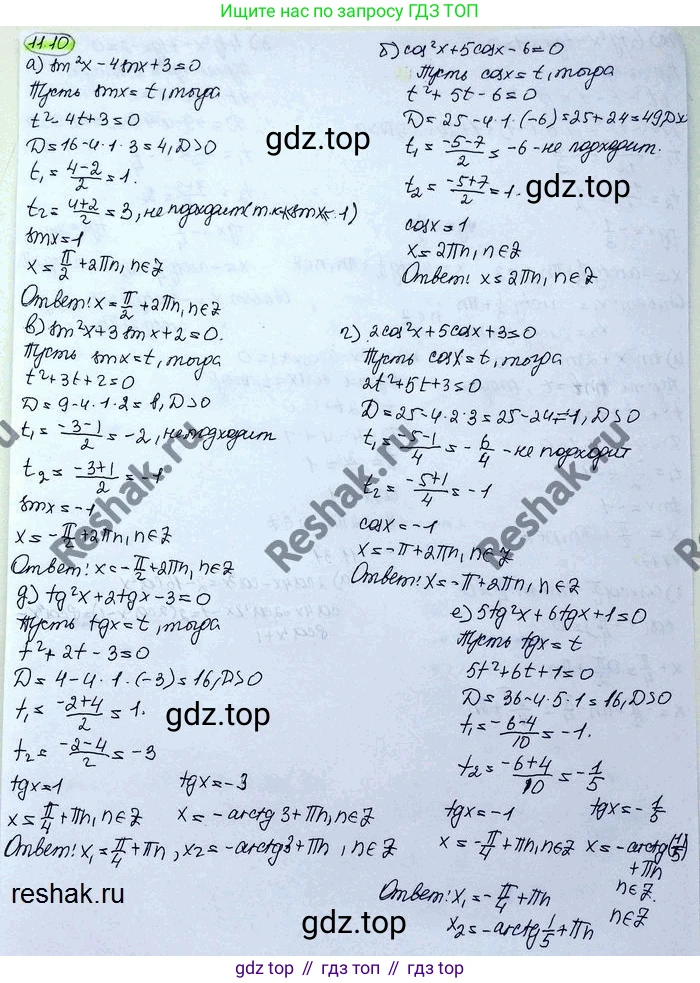 Ищите нас по запросу ГДЗ ТОП
11.10
а) sin²x - 4sinx + 3 = 0
Пусть sinx = t, тогда
t² - 4t + 3 = 0
D = 16 - 4·1·3 = 4, D>0
t₁ = (4-2)/2 = 1.
t₂ = (4+2)/2 = 3, не подходит
sinx = 1
x = π/2 + 2πn, n∈Z
Ответ: x = π/2 + 2πn, n∈Z
б) cos²x + 5cosx - 6 = 0
Пусть cosx = t, тогда
t² + 5t - 6 = 0
D = 25 - 4·1·(-6) = 25 + 24 = 49
t₁ = (-5-7)/2 = -6 - не подходит.
t₂ = (-5+7)/2 = 1.
cosx = 1
x = 2πn, n∈Z
Ответ: x = 2πn, n∈Z
в) sin²x + 3sinx + 2 = 0.
Пусть sinx = t, тогда
t² + 3t + 2 = 0
D = 9 - 4·1·2 = 1, D>0
t₁ = (-3-1)/2 = -2, не подходит
t₂ = (-3+1)/2 = -1
sinx = -1
x = -π/2 + 2πn, n∈Z
Ответ: x = -π/2 + 2πn, n∈Z
г) 2cos²x + 5cosx + 3 = 0
Пусть cosx = t, тогда
2t² + 5t + 3 = 0
D = 25 - 4·2·3 = 25 - 24 = 1, D>0
t₁ = (-5-1)/4 = -6/4 - не подходит
t₂ = (-5+1)/4 = -1
cosx = -1
x = -π + 2πn, n∈Z
Ответ: x = -π + 2πn, n∈Z
д) tg²x + 2tgx - 3 = 0
Пусть tgx = t, тогда
t² + 2t - 3 = 0
D = 4 - 4·1·(-3) = 16, D>0
t₁ = (-2+4)/2 = 1.
t₂ = (-2-4)/2 = -3
tgx = 1 tgx = -3
x = π/4 + πn, n∈Z x = -arctg3 + πn, n∈Z
Ответ: x₁ = π/4 + πn, x₂ = -arctg3 + πn, n∈Z
е) 5tg²x + 6tgx + 1 = 0
Пусть tgx = t
5t² + 6t + 1 = 0
D = 36 - 4·5·1 = 16, D>0
t₁ = (-6-4)/10 = -1.
t₂ = (-6+4)/10 = -1/5
tgx = -1 tgx = -1/5
x = -π/4 + πn, n∈Z x = -arctg(1/5)
+πn
n∈Z.
Ответ: x₁ = -π/4 + πn
x₂ = -arctg 1/5 + πn n∈Z
gdz.top
gdz.top
gdz.top
gdz.top
Reshak.ru
Reshak.ru
Reshak.ru
reshak.ru
gdz top // гдз топ // gdz.top